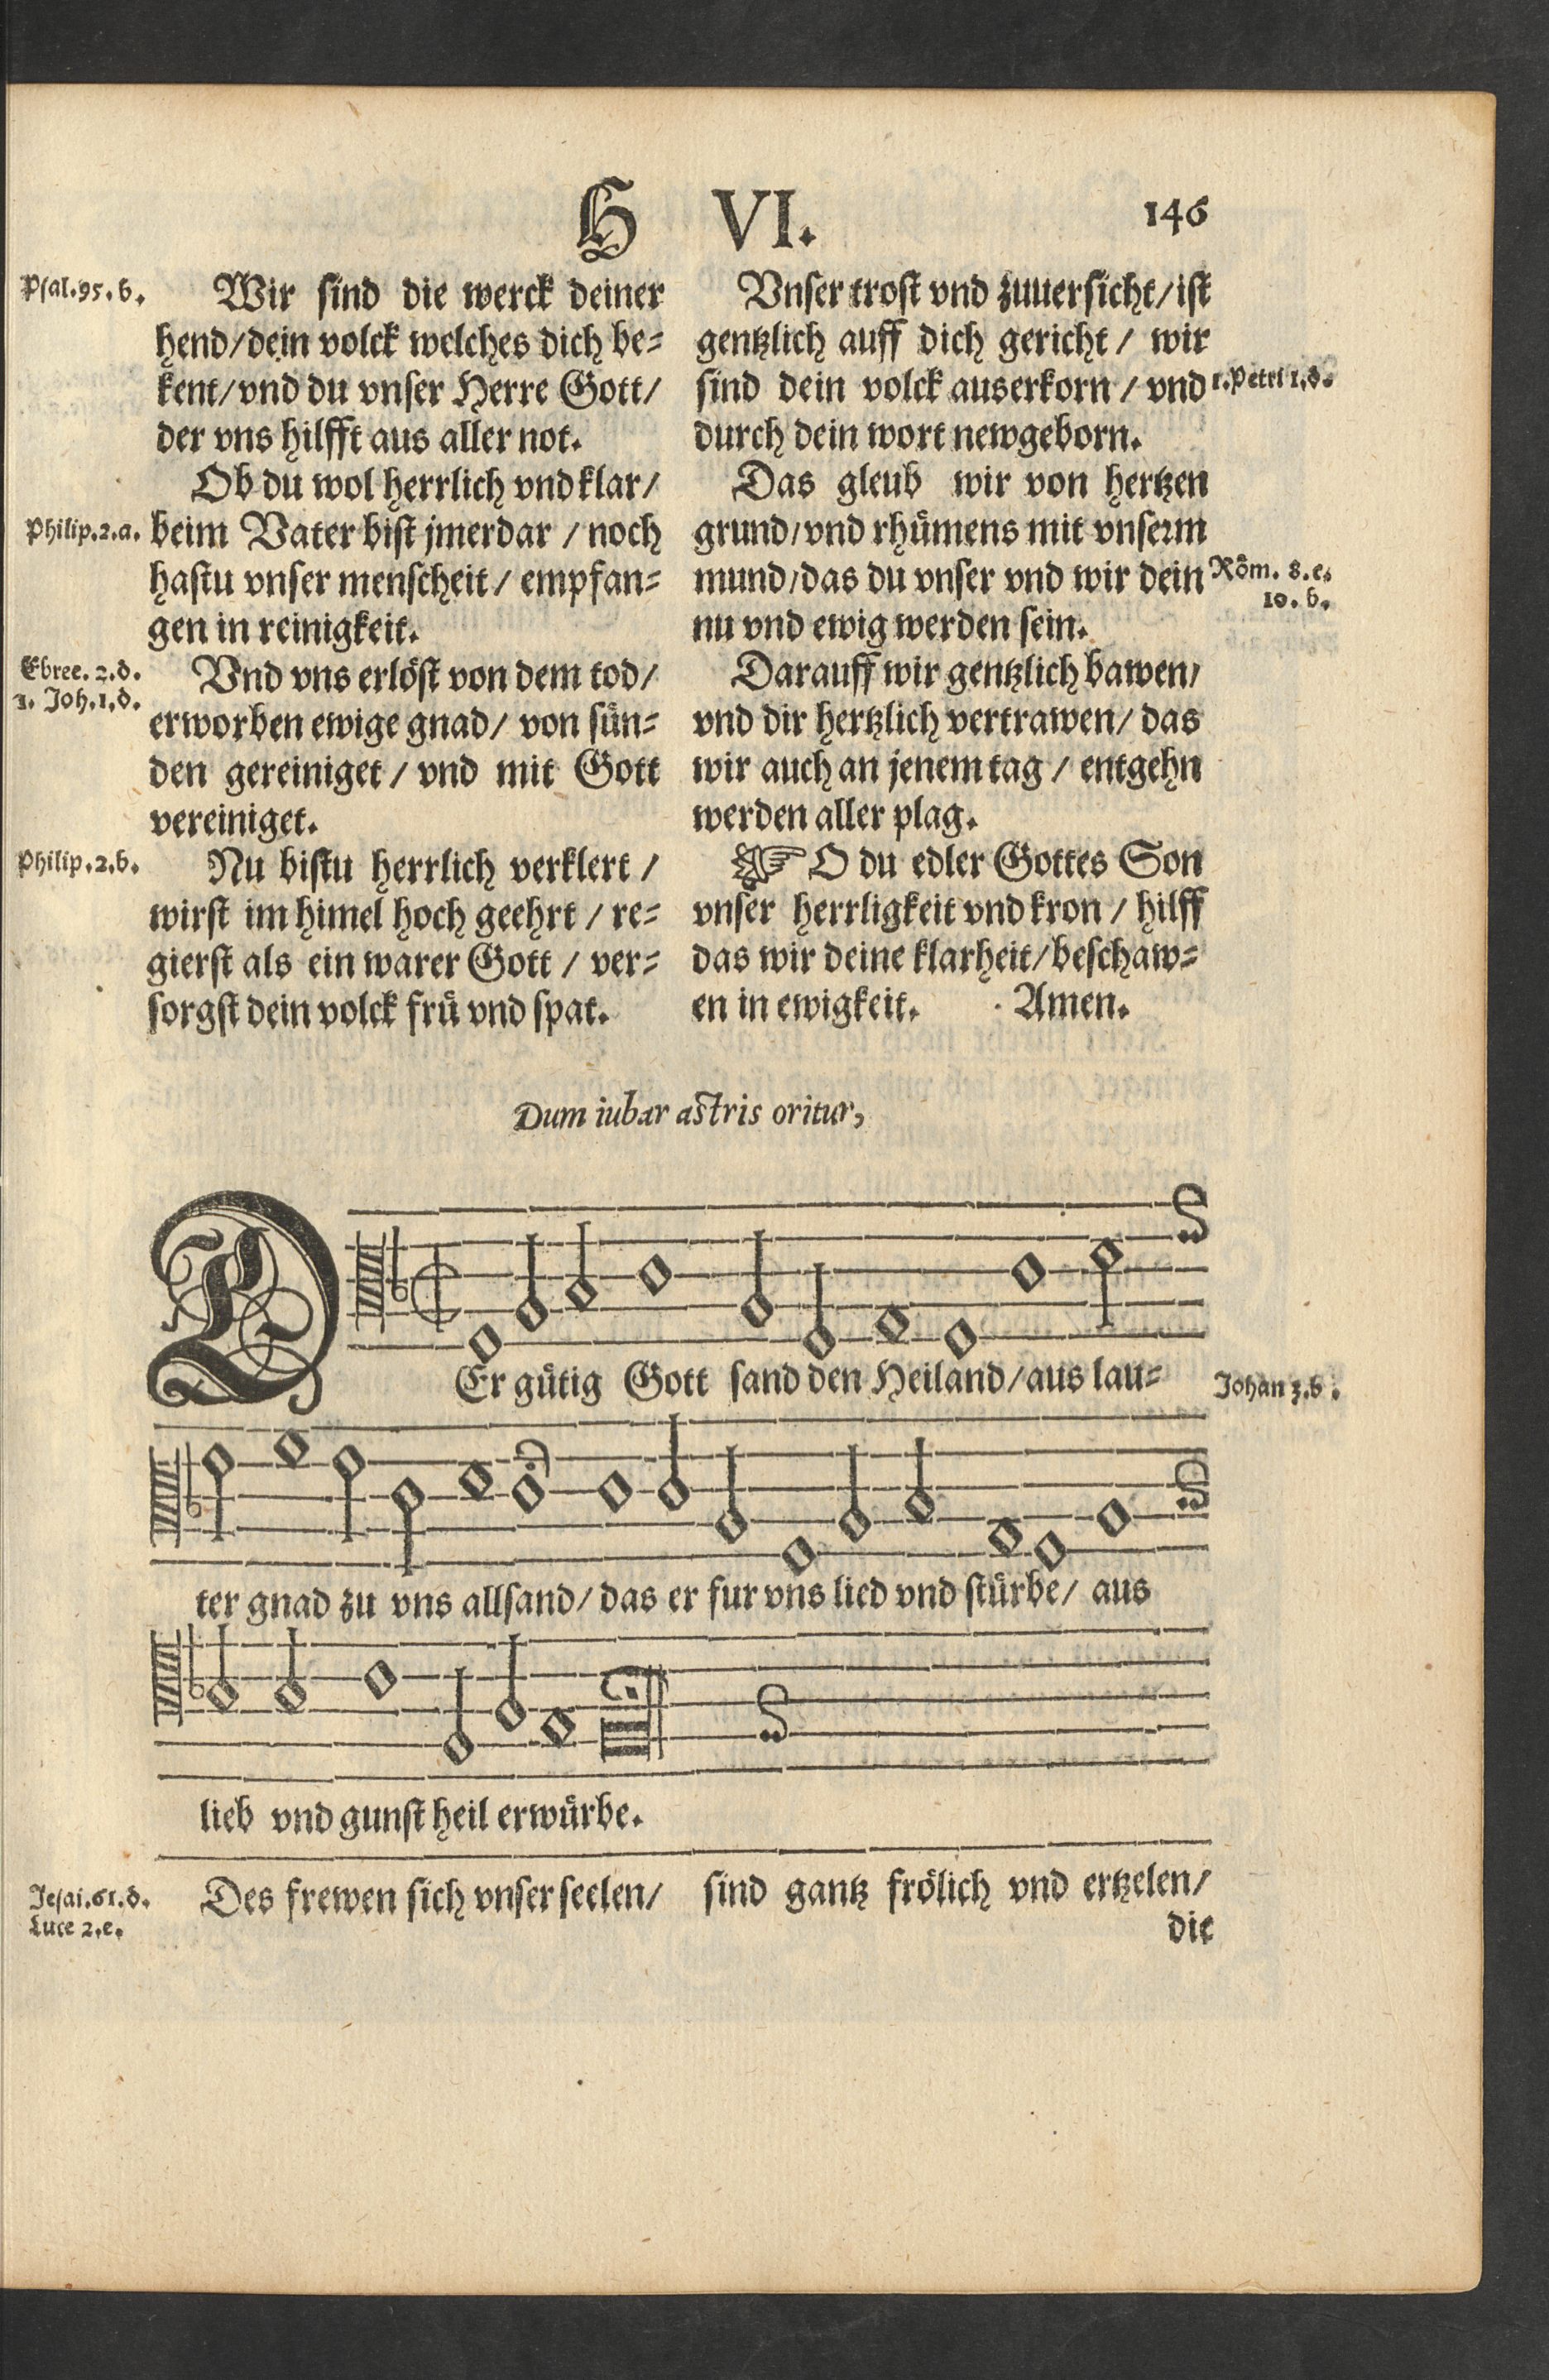 H VI. 146
Psal.95.b.
Wir sind die werck deiner
hend/dein volck welches dich be=
kent/vnd du vnser Herre Gott/
der vns hilfft aus aller not.
Ob du wol herrlich vnd klar/
Philip.2.a.
beim Vater bist jmerdar / noch
hastu vnser menscheit/ empfan=
gen in reinigkeit.
Ebree. 2.d.
1. Joh.1.d.
Vnd vns erlöst von dem tod/
erworben ewige gnad/ von sün=
den gereiniget / vnd mit Gott
vereiniget.
Philip.2.b.
Nu bistu herrlich verklert /
wirst im himel hoch geehrt / re=
gierst als ein warer Gott / ver=
sorgst dein volck frü vnd spat.
Vnser trost vnd zuuersicht/ist
gentzlich auff dich gericht / wir
sind dein volck auserkorn / vnd
1.Petri 1.d.
durch dein wort newgeborn.
Das gleub wir von hertzen
grund/vnd rhümens mit vnserm
mund/das du vnser vnd wir dein
Röm. 8.e.
10. b.
nu vnd ewig werden sein.
Darauff wir gentzlich bawen/
vnd dir hertzlich vertrawen/ das
wir auch an jenem tag / entgehn
werden aller plag.
☞ O du edler Gottes Son
vnser herrligkeit vnd kron / hilff
das wir deine klarheit/beschaw=
en in ewigkeit. Amen.
Dum iubar astris oritur,
DEr gütig Gott sand den Heiland/aus lau=
Johan 3.b.
ter gnad zu vns allsand/das er fur vns lied vnd stürbe/ aus
lieb vnd gunst heil erwürbe.
Jesai.61.d.
Luce 2.e.
Des frewen sich vnser seelen/
sind gantz frölich vnd ertzelen/
die